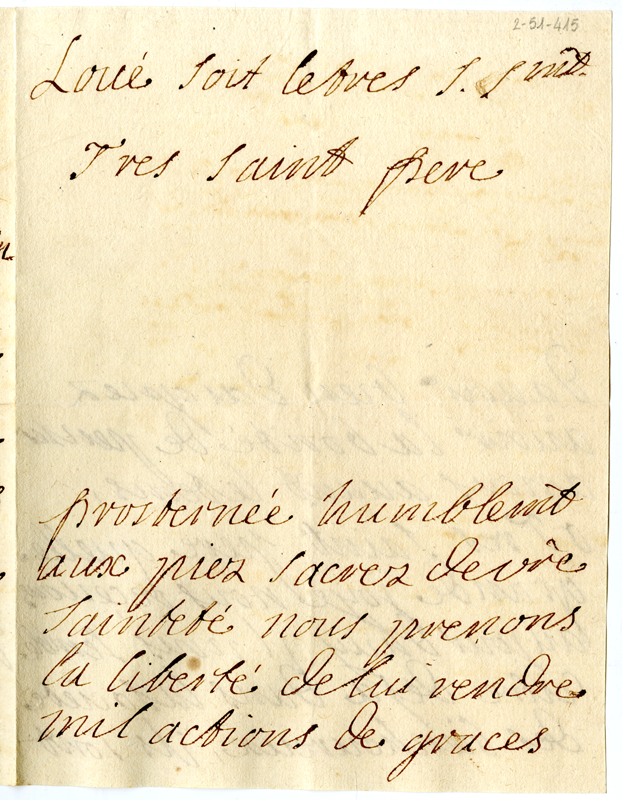 2-51-415
Loüé soit letres s. Smt.
Tres saint pere
prosternée humblemt
aux piez sacrez devrê
sainteté nous prenons
la liberté delui rendre
mil actions de graces